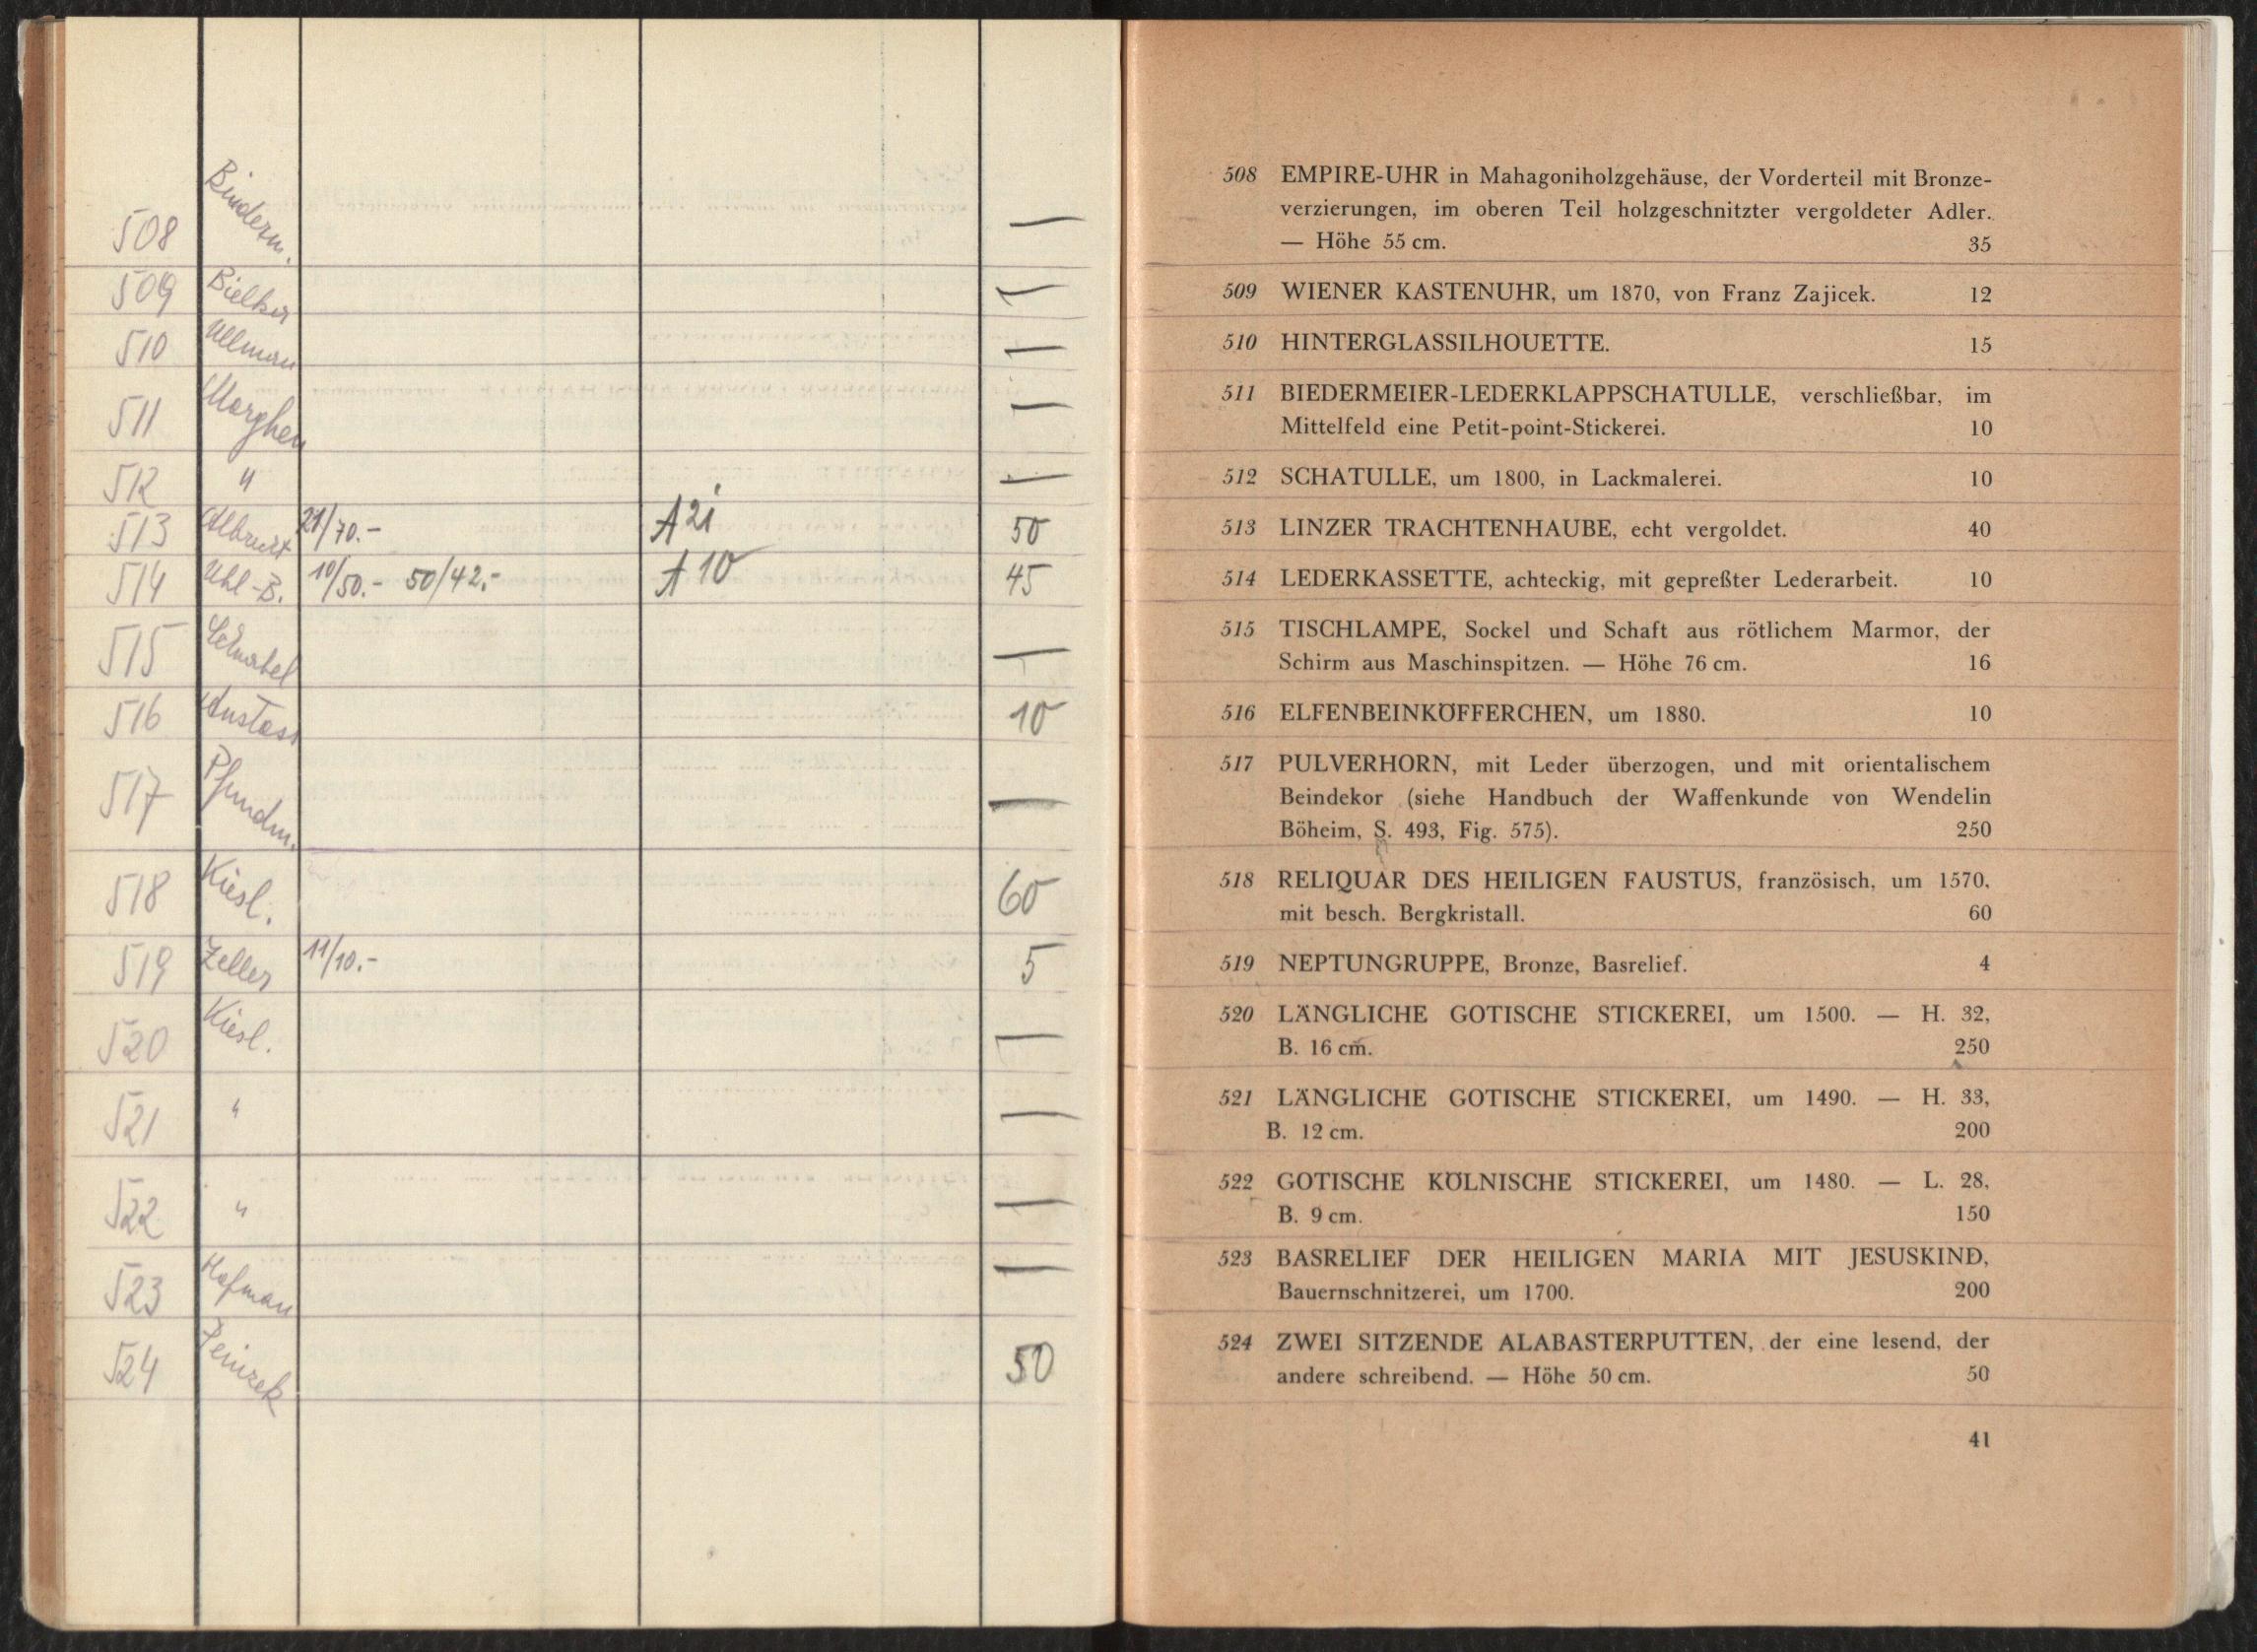 508 Binderm. —
509 Bielka —
510 Ullman —
511 Morghen —
512 " —
513 21/70.- A 21 50
514 Uhl-B. 10/50.- 50/42.- A 10 45
515 Schnabel —
516 10
517 Pfundm. —
518 Kiesl. 60
519 Zeller 11/10.- 5
520 Kiesl. —
521 " —
522 " —
523 Hofman —
524 50
508 EMPIRE-UHR in Mahagoniholzgehäuse, der Vorderteil mit Bronze-
verzierungen, im oberen Teil holzgeschnitzter vergoldeter Adler.
— Höhe 55 cm. 35
509 WIENER KASTENUHR, um 1870, von Franz Zajicek. 12
510 HINTERGLASSILHOUETTE. 15
511 BIEDERMEIER-LEDERKLAPPSCHATULLE, verschließbar, im
Mittelfeld eine Petit-point-Stickerei. 10
512 SCHATULLE, um 1800, in Lackmalerei. 10
513 LINZER TRACHTENHAUBE, echt vergoldet. 40
514 LEDERKASSETTE, achteckig, mit gepreßter Lederarbeit. 10
515 TISCHLAMPE, Sockel und Schaft aus rötlichem Marmor, der
Schirm aus Maschinspitzen. — Höhe 76 cm. 16
516 ELFENBEINKÖFFERCHEN, um 1880. 10
517 PULVERHORN, mit Leder überzogen, und mit orientalischem
Beindekor (siehe Handbuch der Waffenkunde von Wendelin
Böheim, S. 493, Fig. 575). 250
518 RELIQUAR DES HEILIGEN FAUSTUS, französisch, um 1570,
mit besch. Bergkristall. 60
519 NEPTUNGRUPPE, Bronze, Basrelief. 4
520 LÄNGLICHE GOTISCHE STICKEREI, um 1500. — H. 32,
B. 16 cm. 250
521 LÄNGLICHE GOTISCHE STICKEREI, um 1490. — H. 33,
B. 12 cm. 200
522 GOTISCHE KÖLNISCHE STICKEREI, um 1480. — L. 28,
B. 9 cm. 150
523 BASRELIEF DER HEILIGEN MARIA MIT JESUSKIND,
Bauernschnitzerei, um 1700. 200
524 ZWEI SITZENDE ALABASTERPUTTEN, der eine lesend, der
andere schreibend. — Höhe 50 cm. 50
41